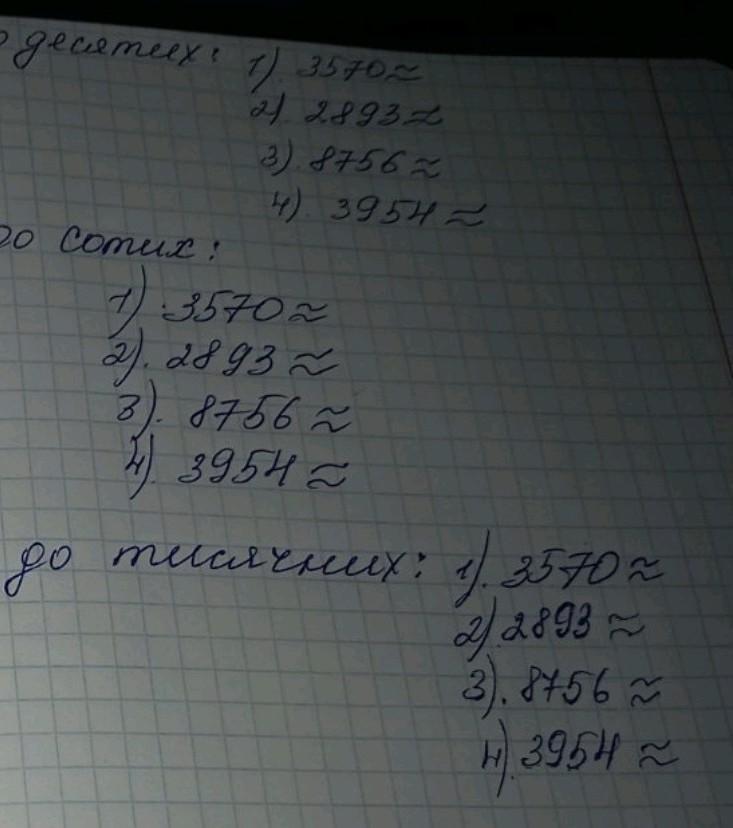 о десятих: 1). 3570≈
2). 2893≈
3). 8756≈
4). 3954≈
до сотих:
1). 3570≈
2). 2893≈
3). 8756≈
4). 3954≈
до тисячних: 1). 3570≈
2). 2893≈
3). 8756≈
4). 3954≈